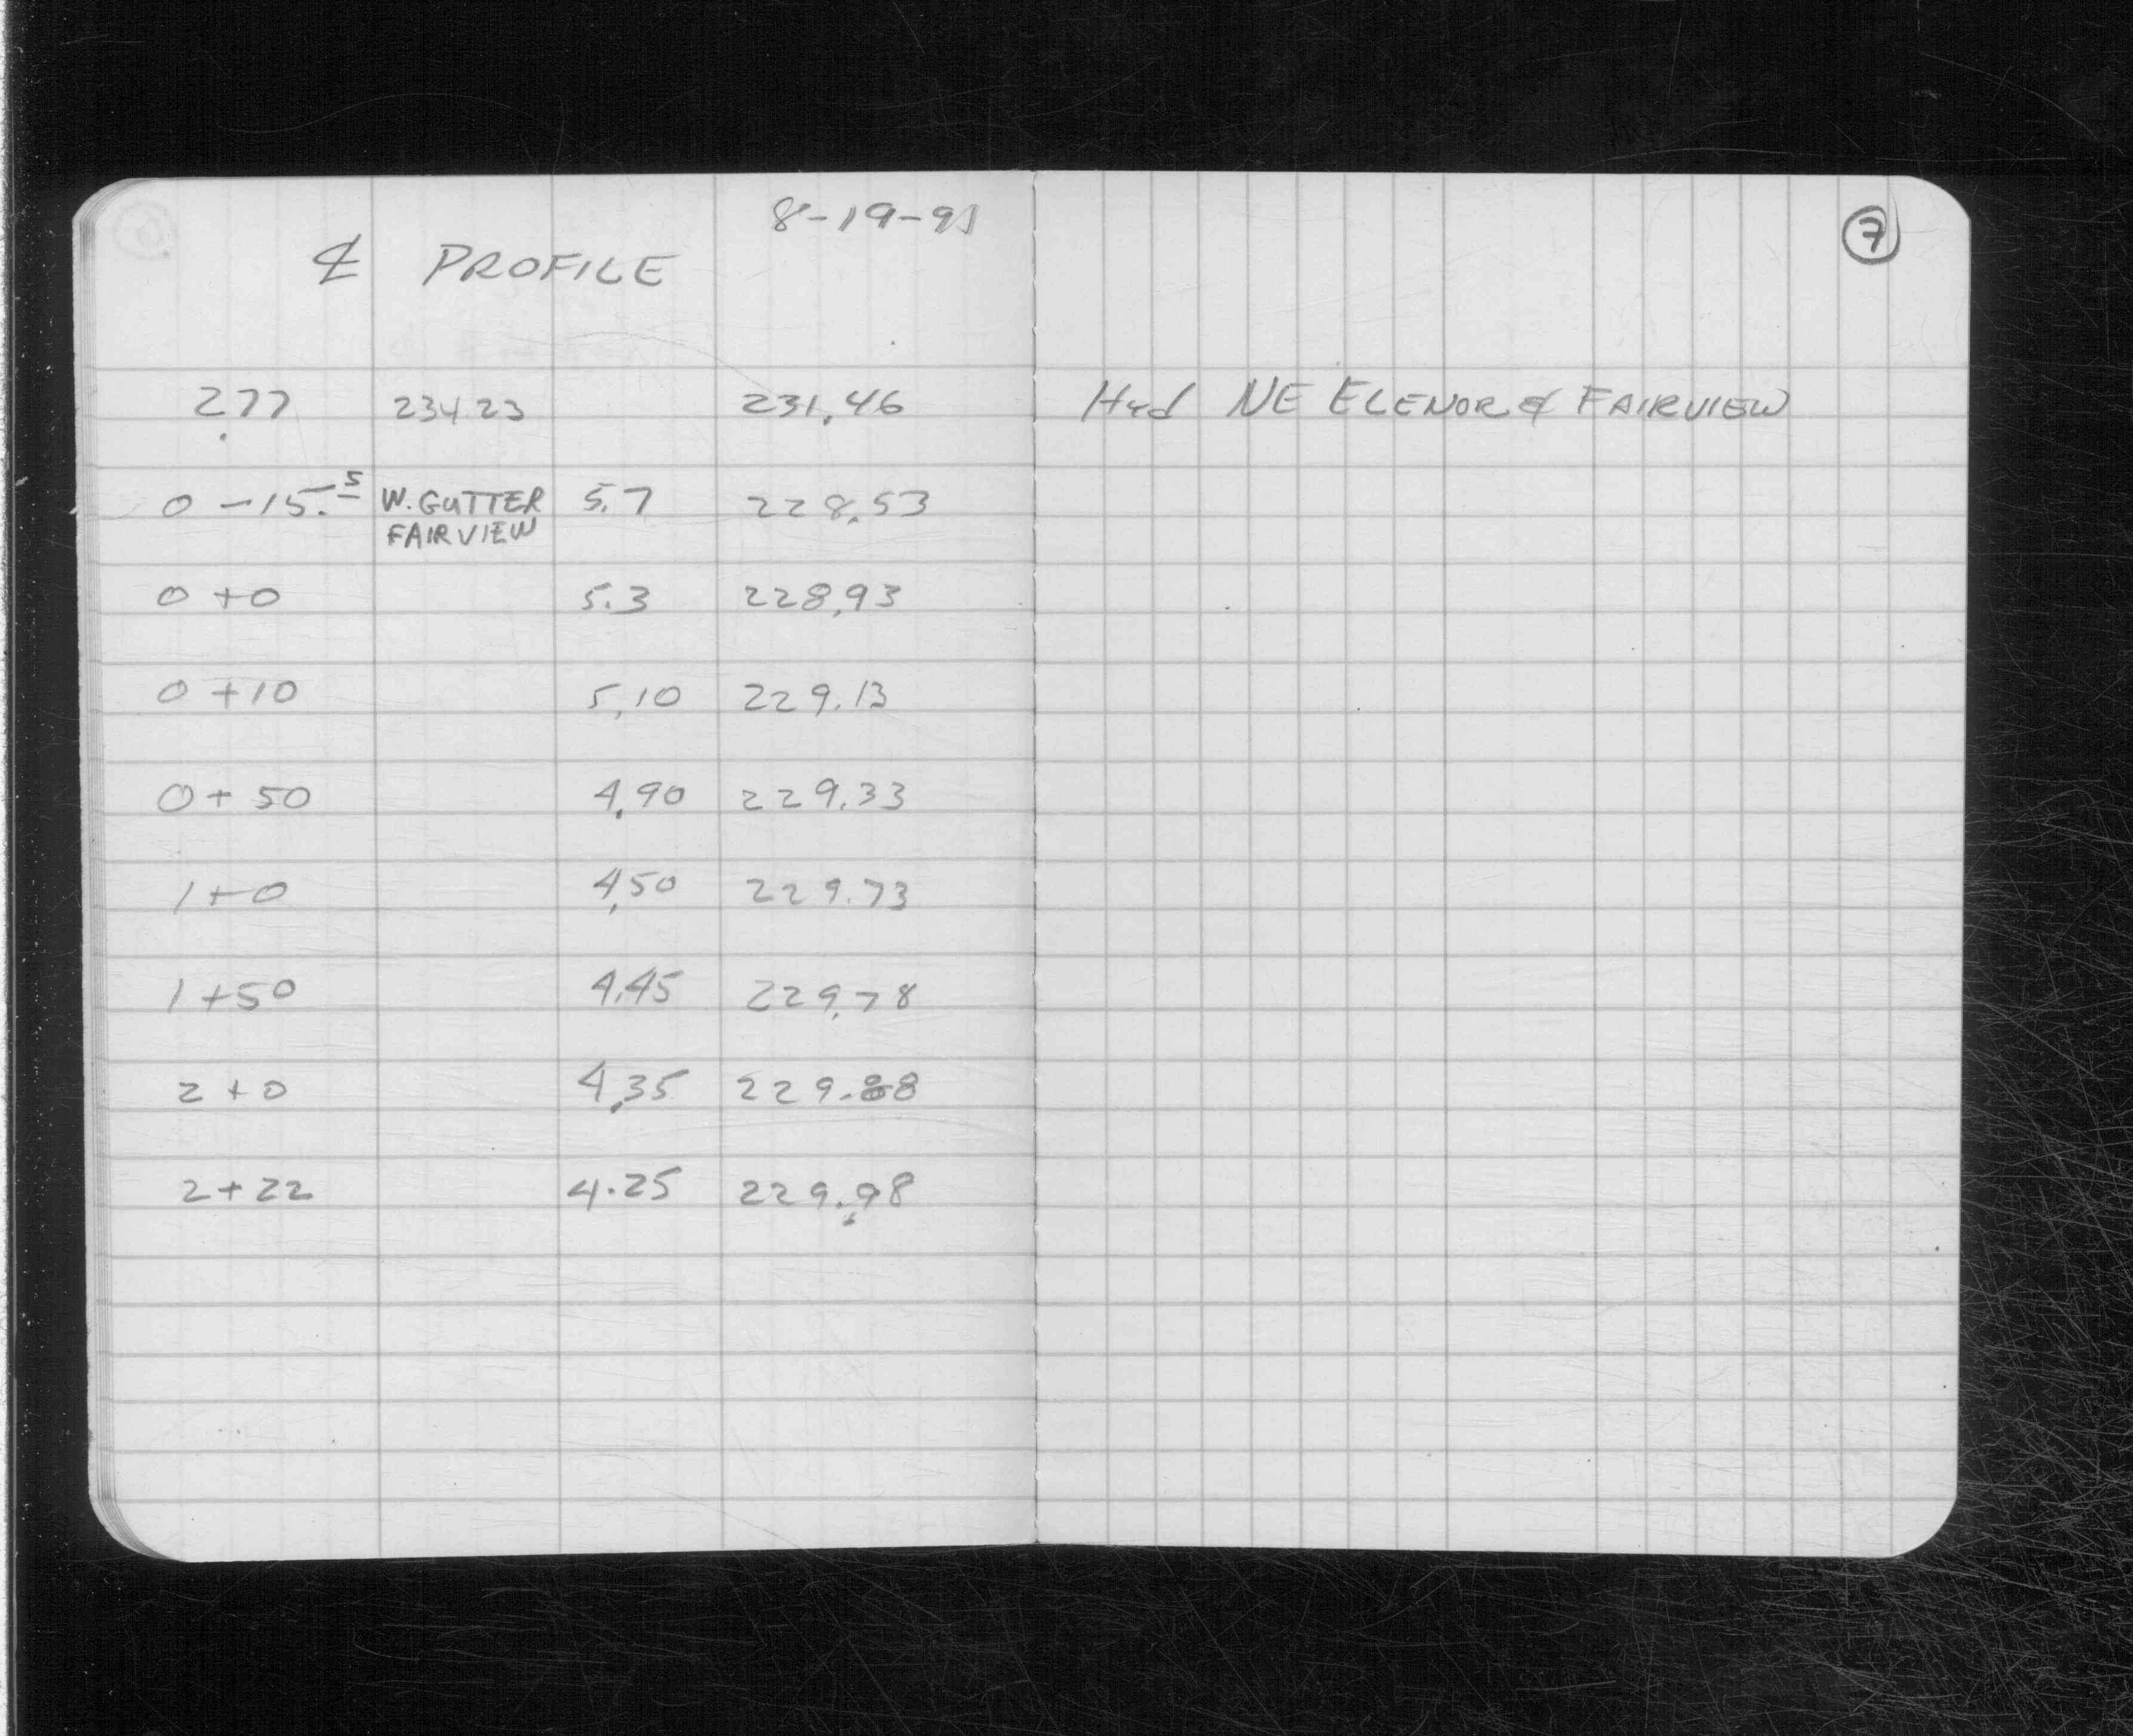 8-19-91
7
℄ PROFILE
2.77 234.23 231.46 Hyd NE ELENOR & FAIRVIEW
0 -15.5 W. GUTTER 5.7 228.53
FAIRVIEW
0 +0 5.3 228.93
0 +10 5.10 229.13
0 + 50 4.90 229.33
1 +0 4.50 229.73
1 +50 4.45 229.78
2 +0 4.35 229.88
2 + 22 4.25 229.98